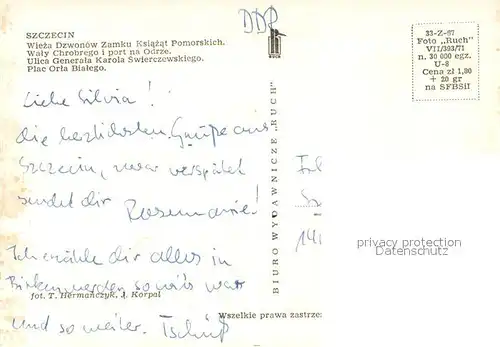 DDR
SZCZECIN
Wieża Dzwonów Zamku Książąt Pomorskich.
Wały Chrobrego i port na Odrze.
Ulica Generała Karola Świerczewskiego.
Plac Orła Białego.
RUCH
33-Z-67
Foto „Ruch"
VII/393/71
n. 30 000 egz.
U-8
Cena zł 1,80
+ 20 gr
na SFBSiI
Liebe Silvia!
die herzlichsten Grüße aus
Szczecin, zwar verspätet
sendet dir Rosemarie!
Ich erzähle dir alles in
Birkenwerder so wie's war
und so weiter. Tschüß
fot. T. Hermańczyk, J. Korpal
BIURO WYDAWNICZE „RUCH"
Wszelkie prawa zastrze
privacy protection
Datenschutz